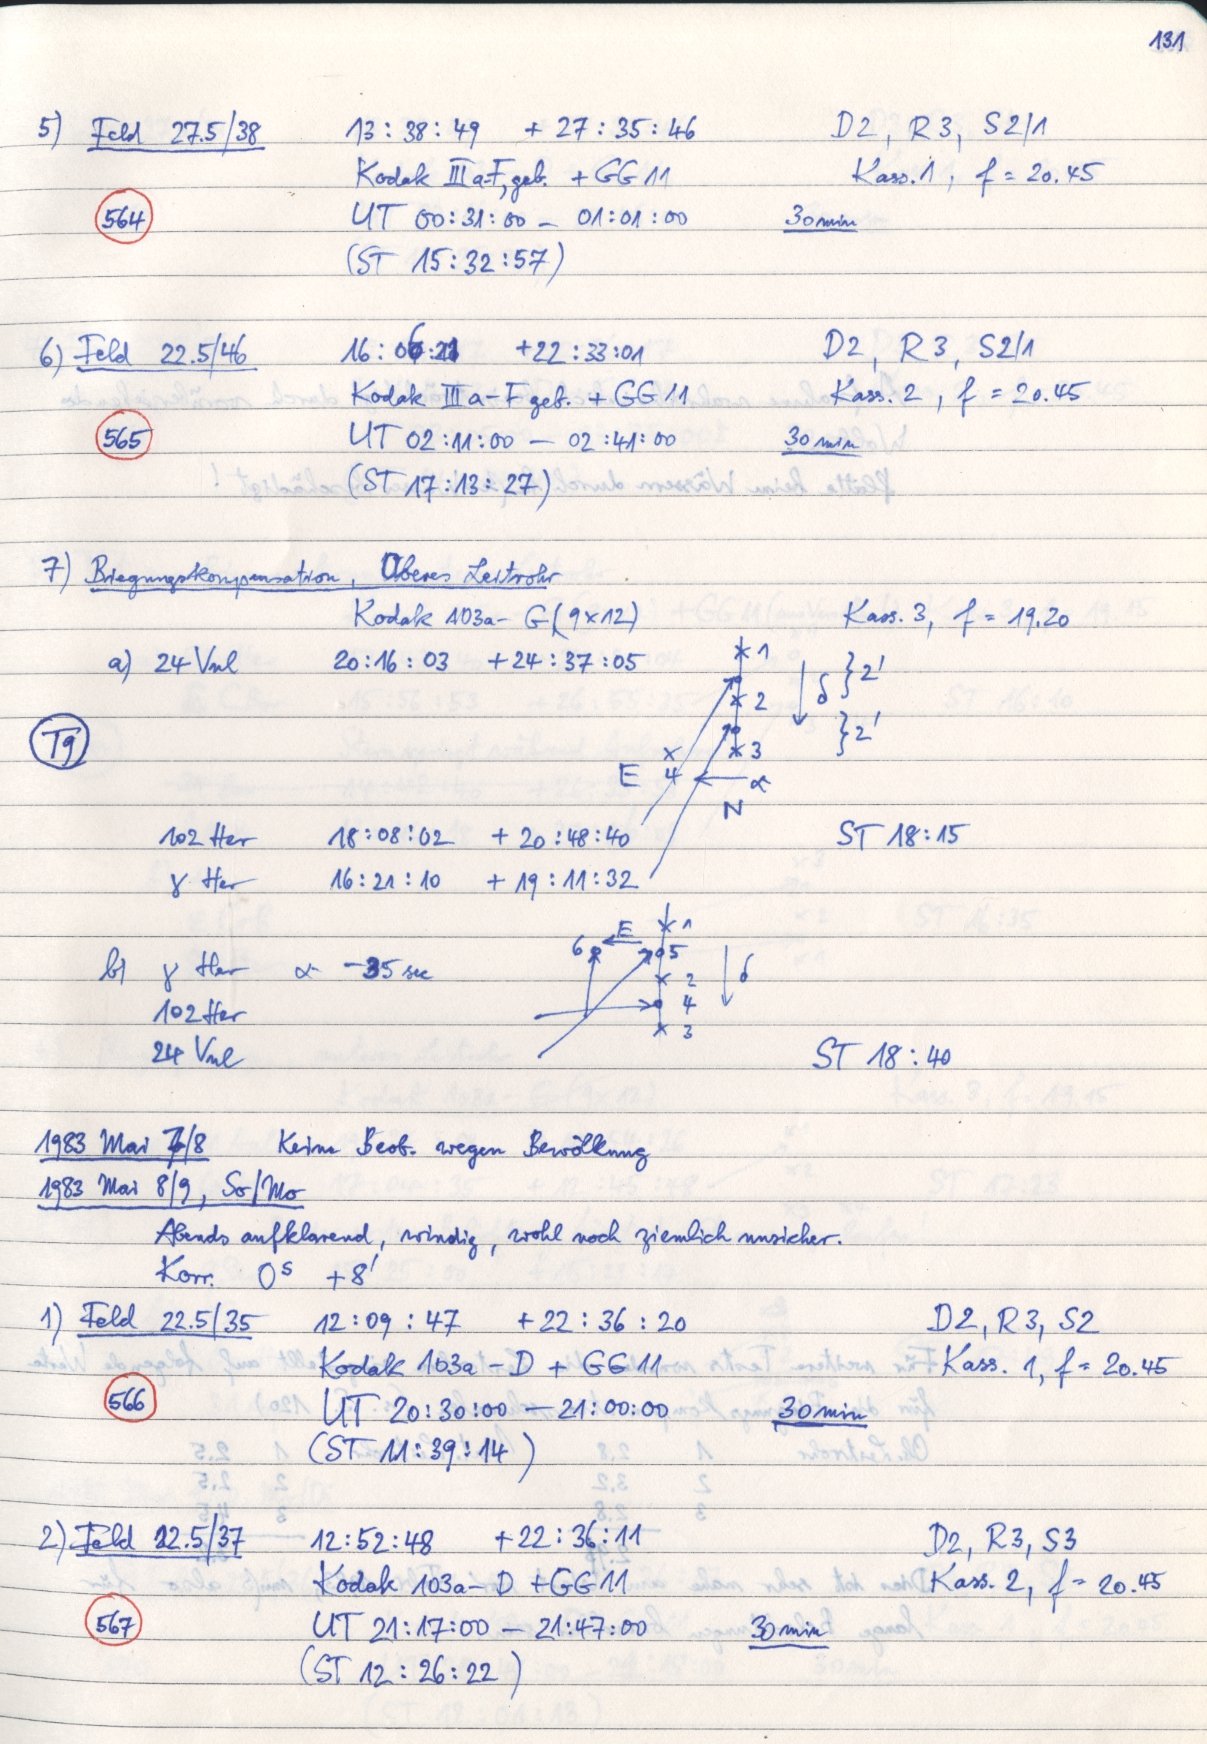 131
5) Feld 27.5/38 13:38:49 + 27:35:46 D2, R3, S2/1
Kodak IIIa-F, geb. + GG11 Kass. 1, f = 20.45
564 UT 00:31:00 – 01:01:00 30 min
(ST 15:32:57)
6) Feld 22.5/46 16:06:21 +22:33:01 D2, R3, S2/1
Kodak IIIa-F geb. + GG11 Kass. 2, f = 20.45
565 UT 02:11:00 – 02:41:00 30 min
(ST 17:13:27)
7) Biegungskompensation, Oberes Leitrohr
Kodak 103a-G (9x12) Kass. 3, f = 19.20
a) 24 Vul 20:16:03 +24:37:05
x 1
x 2
x 3
x 4
δ
} 2'
} 2'
T9
E
α
N
102 Her 18:08:02 + 20:48:40 ST 18:15
γ Her 16:21:10 + 19:11:32
x 1
E
6 5
b) γ Her α -35 sec x 2 δ
102 Her 4
x 3
24 Vul ST 18:40
1983 Mai 7/8 Keine Beob. wegen Bewölkung
1983 Mai 8/9, So/Mo
Abends aufklarend, windig, wohl noch ziemlich unsicher.
Korr. 0s +8'
1) Feld 22.5/35 12:09:47 +22:36:20 D2, R3, S2
Kodak 103a-D + GG11 Kass. 1, f = 20.45
566 UT 20:30:00 – 21:00:00 30 min
(ST 11:39:14)
2) Feld 22.5/37 12:52:48 +22:36:11 D2, R3, S3
Kodak 103a-D + GG11 Kass. 2, f = 20.45
567 UT 21:17:00 – 21:47:00 30 min
(ST 12:26:22)